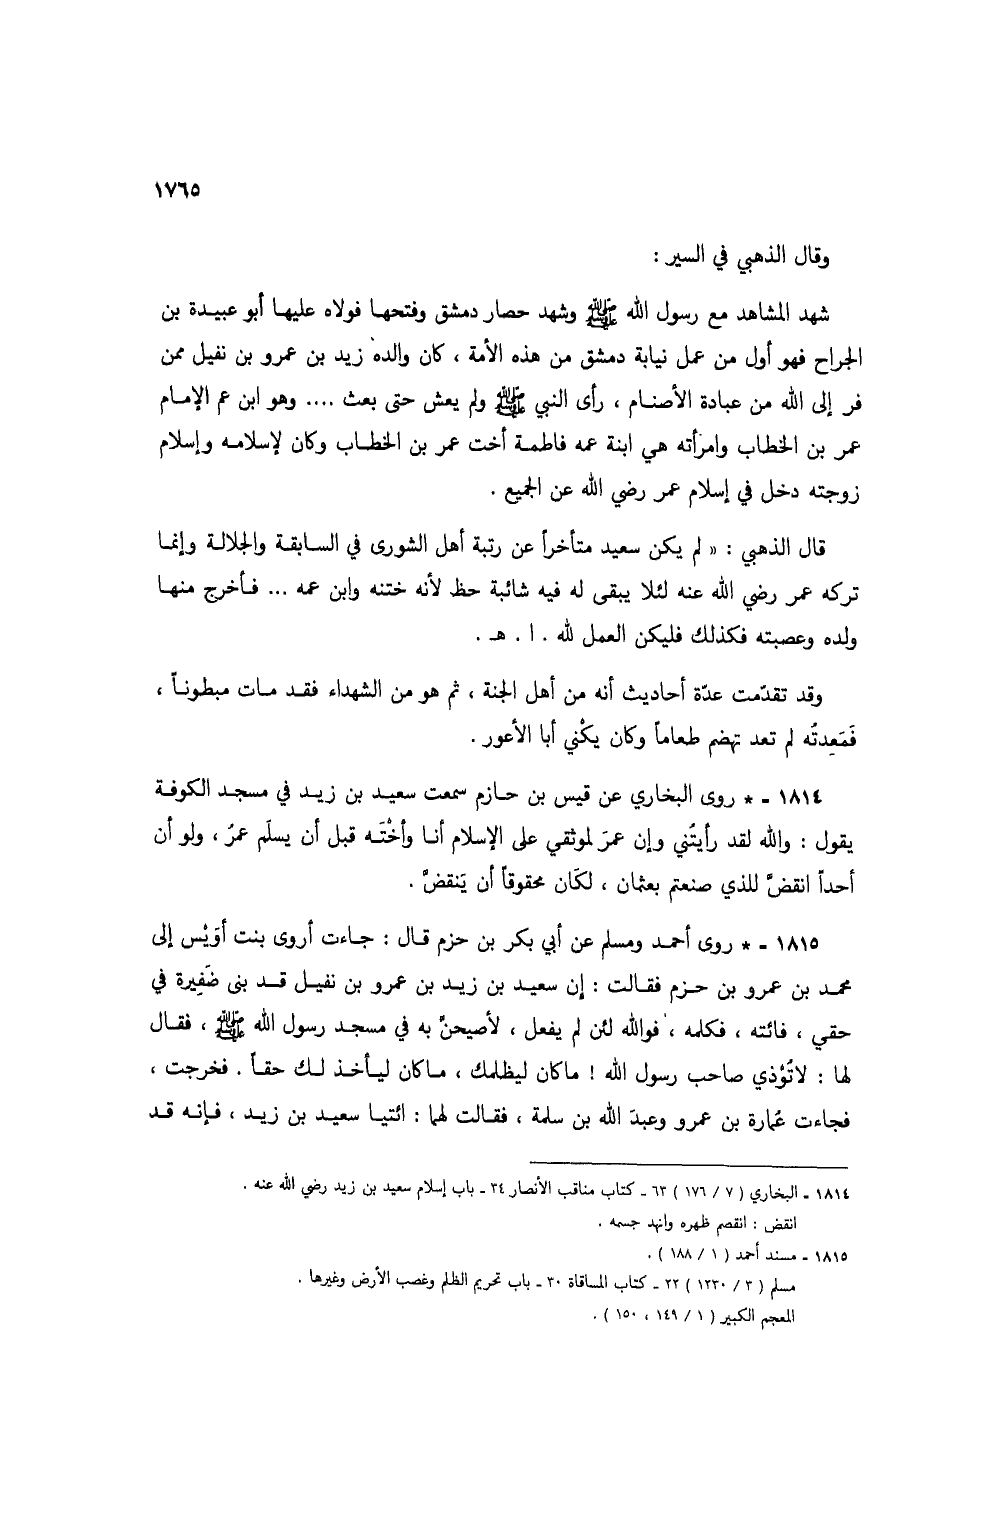 ١٧٦٥
وقال الذهبي في السير :
شهد المشاهد مع رسول الله ﷺ وشهد حصار دمشق وفتحها فولاه عليها أبو عبيدة بن
الجراح فهو أول من عمل نيابة دمشق من هذه الأمة ، كان والده زيد بن عمرو بن نفيل ممن
فر إلى الله من عبادة الأصنام ، رأى النبي ﷺ ولم يعش حتى بعث .... وهو ابن عم الإمام
عمر بن الخطاب وامرأته هي ابنة عمه فاطمة أخت عمر بن الخطاب وكان لإسلامه وإسلام
زوجته دخل في إسلام عمر رضي الله عن الجميع .
قال الذهبي : « لم يكن سعيد متأخراً عن رتبة أهل الشورى في السابقة والجلالة وإنما
تركه عمر رضي الله عنه لئلا يبقى له فيه شائبة حظ لأنه ختنه وابن عمه ... فأخرج منها
ولده وعصبته فكذلك فليكن العمل لله . ا . هـ .
وقد تقدّمت عدّة أحاديث أنه من أهل الجنة ، ثم هو من الشهداء فقد مات مبطوناً ،
فَمَعِدتُه لم تعد تهضم طعاماً وكان يكْني أبا الأعور .
١٨١٤ - * روى البخاري عن قيس بن حازم سمعت سعيد بن زيد في مسجد الكوفة
يقول : والله لقد رأيتُني وإن عمرَ لموثقي على الإسلام أنا وأخْتَه قبل أن يسلَم عمرُ ، ولو أن
أحداً انقضَّ للذي صنعتم بعثمان ، لكَان محقوقاً أن يَنقضَّ .
١٨١٥ - * روى أحمد ومسلم عن أبي بكر بن حزم قال : جاءت أروى بنت أوَيْس إلى
محمد بن عمرو بن حزم فقالت : إن سعيد بن زيد بن عمرو بن نفيل قد بنى ضَفِيرة في
حقي ، فائته ، فكلمه ، فوالله لئن لم يفعل ، لأصيحنَّ به في مسجد رسول الله ﷺ ، فقال
لها : لاتُوْذي صاحب رسول الله ! ماكان ليظلمك ، ماكان ليأخذ لك حقاً . فخرجت ،
فجاءت عُمارة بن عمرو وعبدَ الله بن سلمة ، فقالت لهما : ائتيا سعيد بن زيد ، فإنه قد
١٨١٤ - البخاري ( ٧ / ١٧٦ ) ٦٣ - كتاب مناقب الأنصار ٣٤ - باب إسلام سعيد بن زيد رضي الله عنه .
انقض : انقصم ظهره وانهد جسمه .
١٨١٥ - مسند أحمد ( ١ / ١٨٨ ) .
مسلم ( ٣ / ١٢٣٠ ) ٢٢ - كتاب المساقاة ٣٠ - باب تحريم الظلم وغصب الأرض وغيرها .
المعجم الكبير ( ١ / ١٤٩ ، ١٥٠ ) .